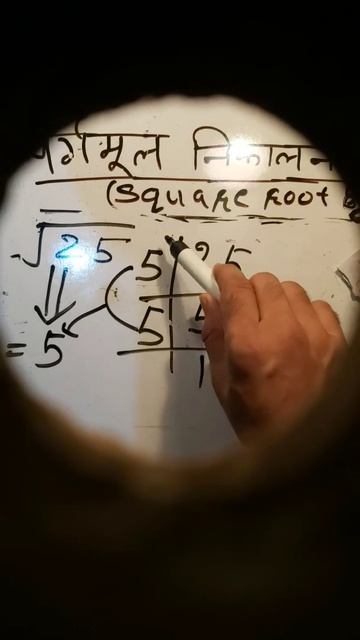 वर्गमूल निकालन
(Square Root
√25 5 25
= 5 5 5
1